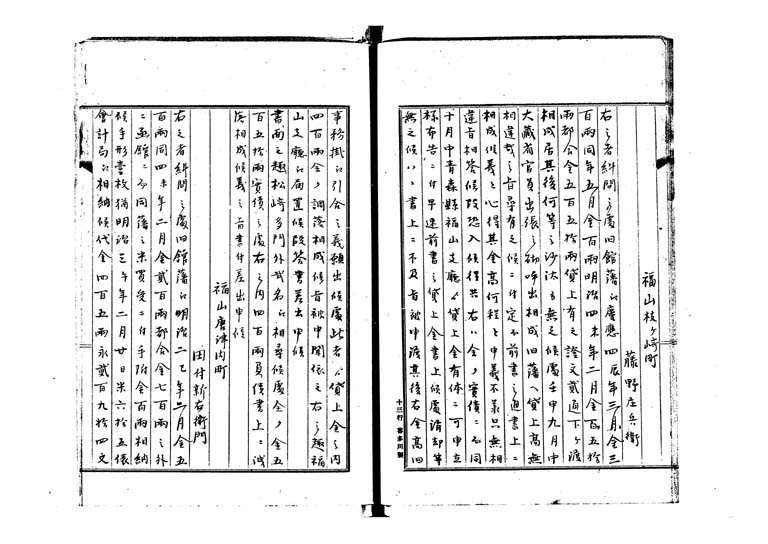 福山枝ヶ崎町
藤野庄兵衛
右之者糾問之處旧館藩江慶應四辰年三月金三
百両同年五月金百両明治四未年二月金百五拾
両都合金五百五拾両貸上有之證文貳通下ヶ渡
相成居其後何等之沙汰も無之候處壬申九月中
大藏省官員出張之砌呼出相成旧藩ヘ貸上高無
相違哉之旨尋有之候ニ付定而前書之通書上ニ
相成候義と心得其金高何程と申義不及只無相
違旨相答候段恐入候得共右八金ハ實債ニ不同
十月中青森縣福山支廳ゟ貸上金有体ニ可申立
標布告ニ付早速前書之貸上金書上候處消却等
無之候ハヽ書上ニ不及旨被申渡其後右金高旧
事務掛江引合之義願出候處此者ゟ貸上金之内
四百両余ハ調落相成候旨被申聞依之右之趣福
山支廳江届置候段答書差出申候
書面之趣松崎多門外貳名江相尋候處全ク金五
百五拾両實債之處右之内四百両負債書上ニ洩
落相成候義之旨書付差出申候
福山唐津内町
田付新右衛門
右之者糾問之處旧館藩江明治二巳年二月金五
百両同四未年二月金貳百両都合金七百両之外
ニ函館ニ而同藩之米買受ニ付手附金百両相納
候手形壹枚猶明治三午年二月廿日米六拾五俵
會計局江相納候代金四百五両永貳百九拾四文
十三行 喜多川製